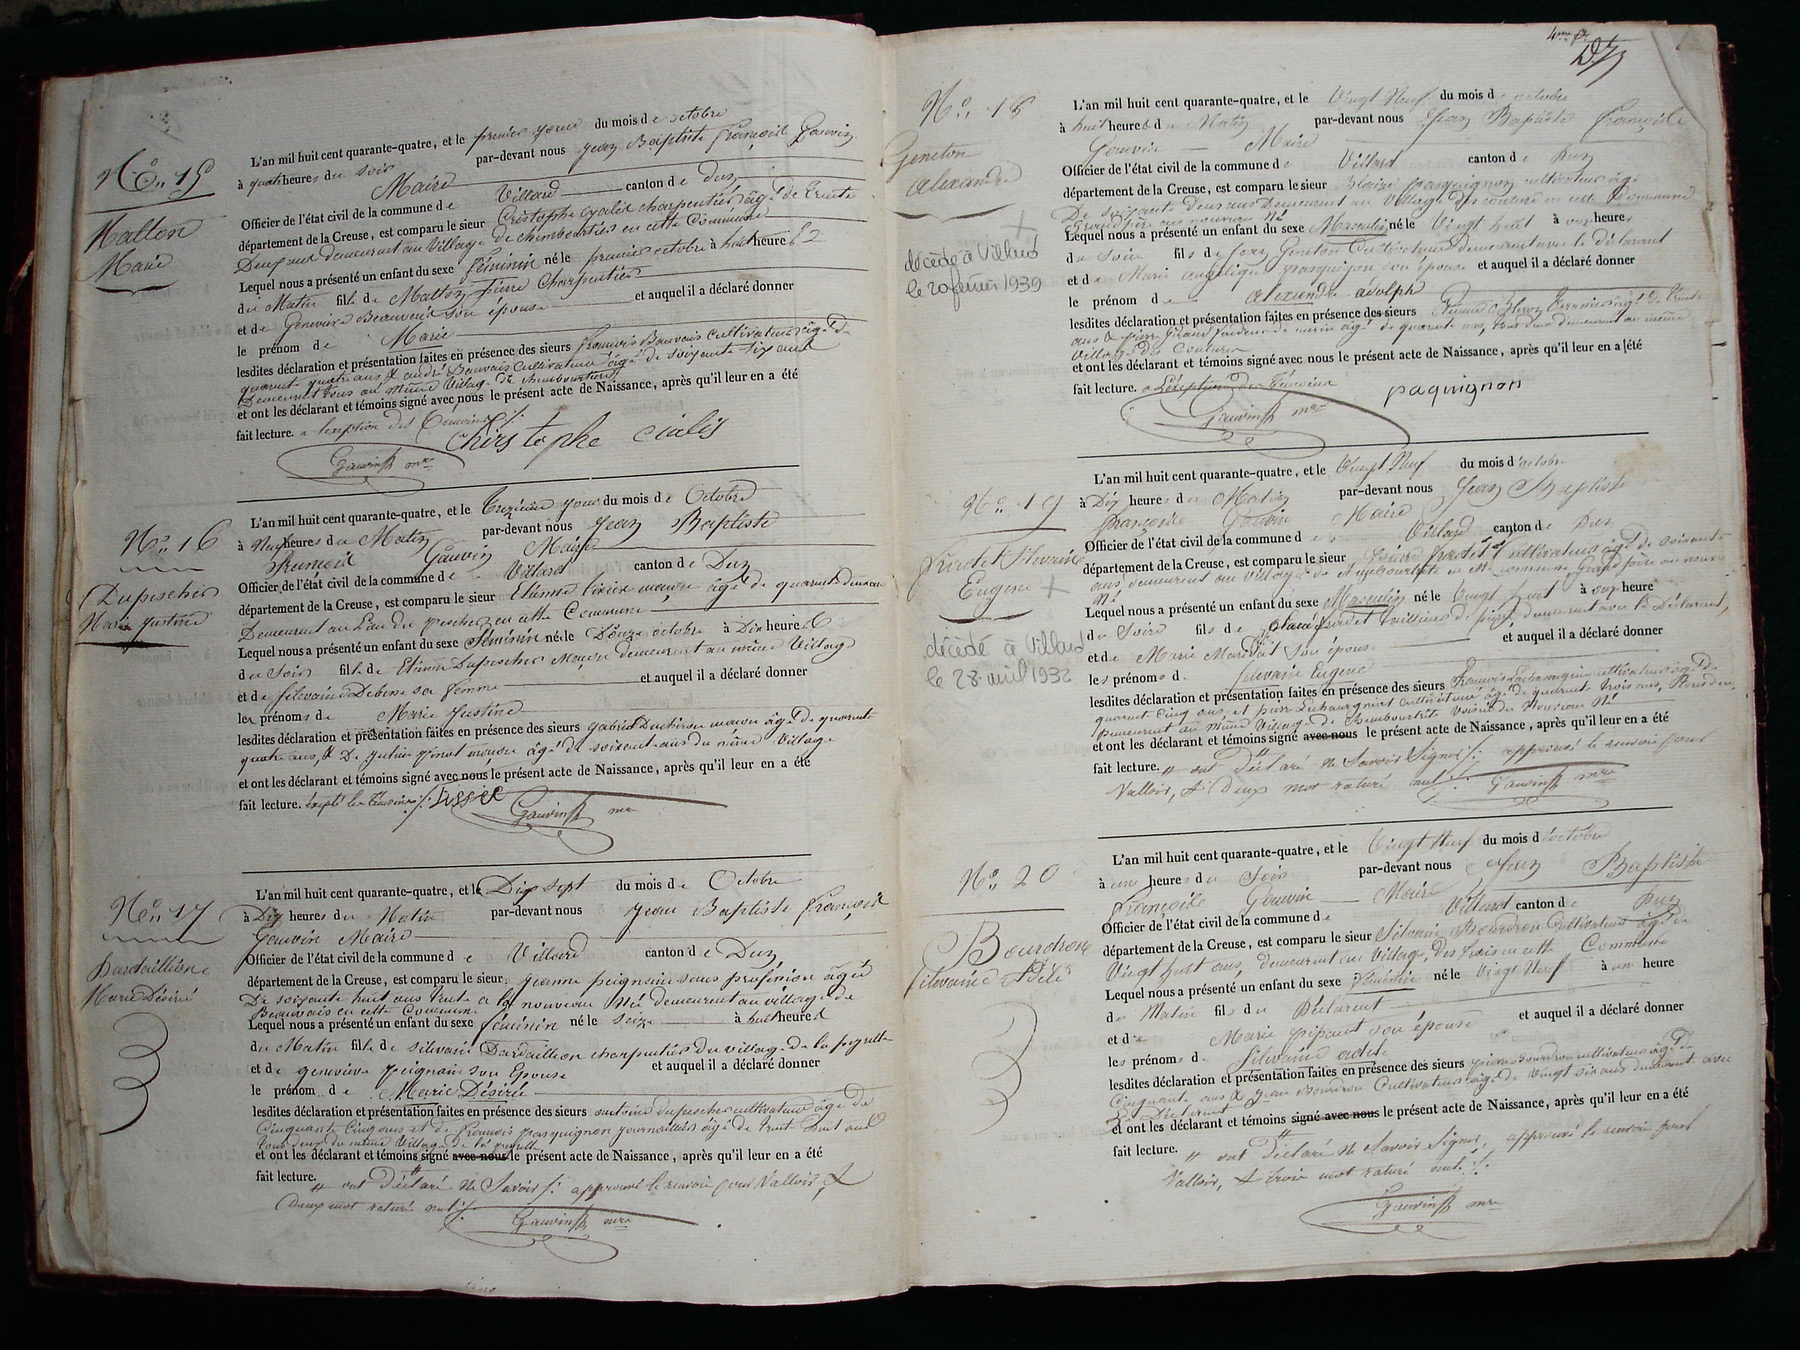 No. 15
Malton
Marie
L'an mil huit cent quarante-quatre, et le premier jour du mois de octobre
à quatre heures du soir par-devant nous Jean Baptiste François Gauvin
Maire
Officier de l'état civil de la commune de Villard canton de Dun
département de la Creuse, est comparu le sieur Cristophe cialis charpentier âgé de trente
Deux ans demeurant au Village de chimbourties en cette Commune
Lequel nous a présenté un enfant du sexe féminin né le premier octobre à huit heures
du Matin fille de Malton pierre Charpentier
et de Genevieve Beauvais son épouse et auquel il a déclaré donner
le prénom de Marie
lesdites déclaration et présentation faites en présence des sieurs françois Bauvais Cultivateur âgé de
quarante quatre ans & andré Bauvais Cultivateur âgé de soixante six ans
Demeurant tous au même Village de
et ont les déclarant et témoins signé avec nous le présent acte de Naissance, après qu'il leur en a été
fait lecture. a lexeption des Temoins
Chirstophe cialis
Gauvin mre
No. 16
Dupescher
Marie Justine
L'an mil huit cent quarante-quatre, et le treizième jour du mois de Octobre
à Neuf heures du Matin par-devant nous Jean Baptiste
françois Gauvin Maire
Officier de l'état civil de la commune de Villard canton de Dun
département de la Creuse, est comparu le sieur Etienne maçon âgé de quarante deux ans
Demeurant au Lieu du pescher en cette Commune
Lequel nous a présenté un enfant du sexe féminin né le Douze octobre à Dix heures
du Soir fille de Etienne Dupescher Maçon demeurant au même Village
et de silvaine Debene sa femme et auquel il a déclaré donner
les prénoms de Marie Justine
lesdites déclaration et présentation faites en présence des sieurs gabriel maçon âgé de quarante
quatre ans, & De pinot maçon âgé de soixante ans du même Village
et ont les déclarant et témoins signé avec nous le présent acte de Naissance, après qu'il leur en a été
fait lecture. Excepté les témoins
Gauvin mre
No. 17
Dardaillion
Marie Désiré
L'an mil huit cent quarante-quatre, et le Dix sept du mois de Octobre
à Dix heures du Matin par-devant nous Jean Baptiste François
Gauvin Maire
Officier de l'état civil de la commune de Villard canton de Dun
département de la Creuse, est comparu le sieur Jeanne peignain sans profession âgée
De soixante huit ans tente a la nouveau Née demeurant au village de
Beauvais en cette Commune
Lequel nous a présenté un enfant du sexe féminin né le seize à huit heures
du Matin fille de silvain Dardaillion charpentier du village de la
et de geneviève peignain son Epouse et auquel il a déclaré donner
le prénom de Marie Désirée
lesdites déclaration et présentation faites en présence des sieurs dupescher cultivateur âgé de
Cinquante Cinq ans et de François pasquignon journaillier âgé de trente huit ans
tous deux du même Village de la
et ont les déclarant et témoins signé avec nous le présent acte de Naissance, après qu'il leur en a été
fait lecture. ont Déclaré Ne Savoir approuvé le renvoi pour Valloir, &
Deux mot raturé nul
Gauvin mre
4me ft
No. 18
Geneton
Alexandre
+
décédé à Villard
le 20 février 1939
L'an mil huit cent quarante-quatre, et le Vingt Neuf du mois de octobre
à huit heures du Matin par-devant nous Jean Baptiste François
Gauvin Maire
Officier de l'état civil de la commune de Villard canton de Dun
département de la Creuse, est comparu le sieur Blaize pasquignon cultivateur âgé
De soixante Deux ans Demeurant au Village des coutures en cette Commune
Grand père au nouveau Né
Lequel nous a présenté un enfant du sexe Masculin né le Vingt huit à onze heures
du Soir fils de Jean Geneton Cultivateur demeurant avec le déclarant
et de Marie angelique pasquignon son épouse et auquel il a déclaré donner
le prénom de alexandre adolph
lesdites déclaration et présentation faites en présence des sieurs
ans & pierre âgé de quarante ans, tous deux demeurant au même
Village des Coutures
et ont les déclarant et témoins signé avec nous le présent acte de Naissance, après qu'il leur en a été
fait lecture. a Lexeption des Témoins
paquignon
Gauvin mre
No. 19
Silvain
Eugene +
décédé à Villard
le 28 avril 1932
L'an mil huit cent quarante-quatre, et le Vingt Neuf du mois d'octobre
à Dix heures du Matin par-devant nous Jean Baptiste
françois Gauvin Maire
Officier de l'état civil de la commune de Villard canton de Dun
département de la Creuse, est comparu le sieur Cultivateur âgé de soixante
ans, demeurant au Village de Commune Grand père au nouveau
Né
Lequel nous a présenté un enfant du sexe Masculin né le Vingt huit à onze heure
du Soir fils de Tailleur de pierre demeurant avec le Déclarant,
et de Marie son épouse et auquel il a déclaré donner
les prénoms de Silvain Eugene
lesdites déclaration et présentation faites en présence des sieurs François cultivateur âgé de
quarante Cinq ans, et pierre Cultivateur âgé de quarante trois ans, tous deux
Demeurant au même Village de Voisin du Nouveau Né
et ont les déclarant et témoins signé avec nous le présent acte de Naissance, après qu'il leur en a été
fait lecture. ont Déclaré Ne Savoir Signer approuvé le renvoi pour
Valloir, & Deux mot raturé nul
Gauvin mre
No. 20
Bourdron
Silvaine Adele
L'an mil huit cent quarante-quatre, et le Vingt Neuf du mois d'octobre
à une heure du Soir par-devant nous Jean Baptiste
François Gauvin Maire
Officier de l'état civil de la commune de Villard canton de Dun
département de la Creuse, est comparu le sieur Silvain Bourdron Cultivateur âgé de
Vingt huit ans, demeurant au Village, des en cette Commune
Lequel nous a présenté un enfant du sexe né le Vingt Neuf à une heure
du Matin fils du Déclarant
et de Marie pipaut son épouse et auquel il a déclaré donner
les prénoms de Silvaine adele
lesdites déclaration et présentation faites en présence des sieurs pierre Bourdron cultivateur âgé de
Cinquante ans & Jean Bourdron Cultivateur âgé de Vingt six ans demeurant avec
Le Déclarant
et ont les déclarant et témoins signé avec nous le présent acte de Naissance, après qu'il leur en a été
fait lecture. ont Déclaré Ne Savoir Signer, approuvé le renvoi pour
Valloir, & trois mot raturé nul
Gauvin mre